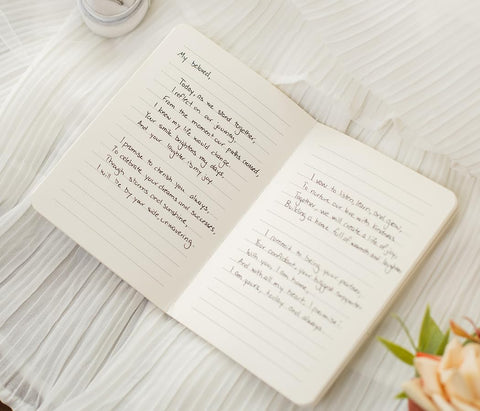 My beloved,
Today, as we stand together,
I reflect on our journey.
From the moment our paths crossed,
I knew my life would change.
Your smile brightens my days,
And your laughter is my joy.
I promise to cherish you always,
To celebrate your dreams and successes,
Through storms and sunshine,
I will be by your side, unwavering.
I vow to listen, learn, and grow,
To nurture our love with kindness
Together, we will create a life of joy,
Building a home full of warmth and laughter
I commit to being your partner,
Your confidant, your biggest supporter.
With you, I am home,
And with all my heart, I promise:
I am yours, today and always.